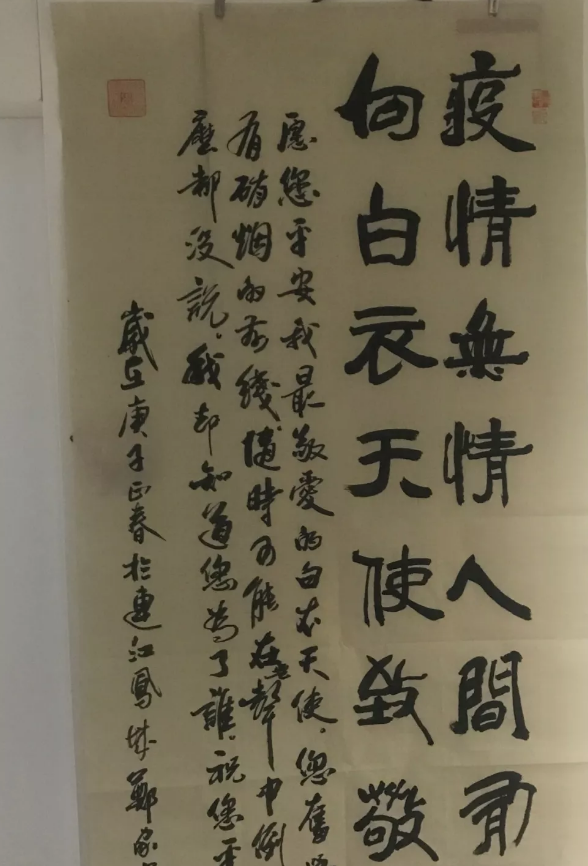 疫情無情人間有
向白衣天使致敬
愿您平安我最敬愛的白衣天使您奮
有硝烟的前綫隨時可能在聲中倒
麼都没説我却知道您為了誰祝您平
歲在庚子正春於連江鳳城鄭家